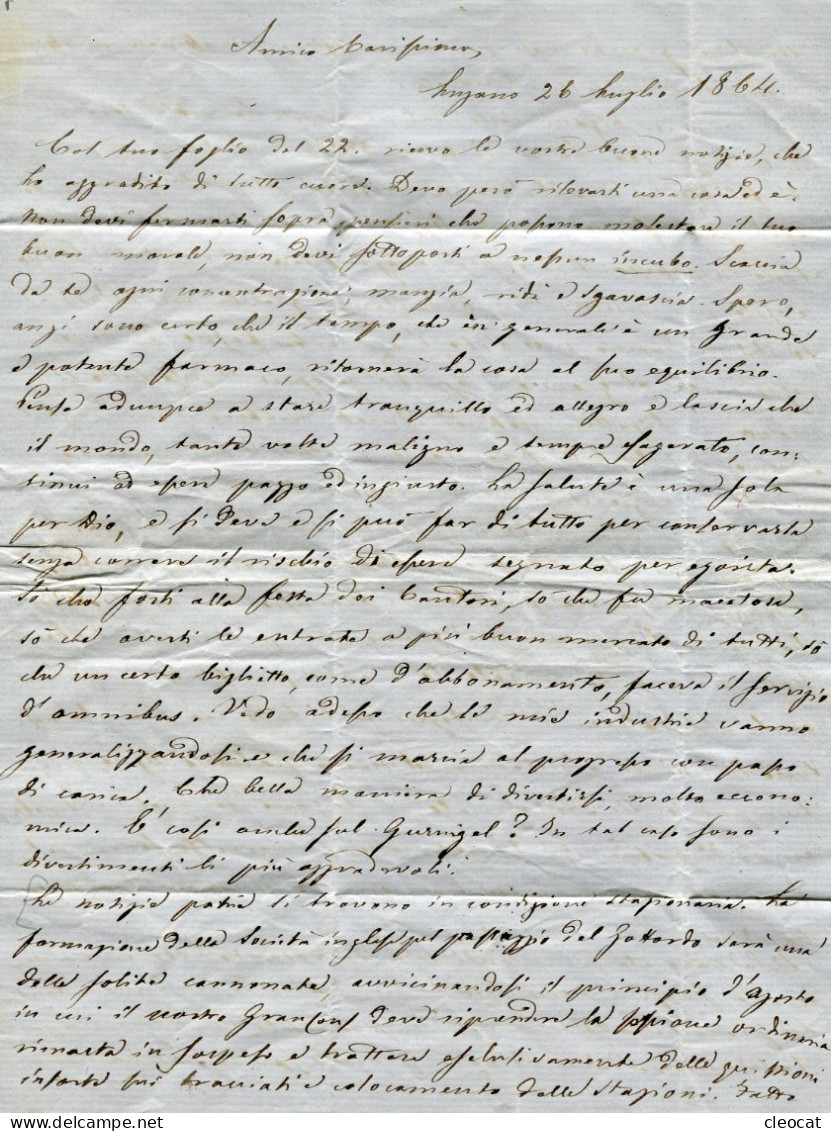 Amico Carissimo,
Lugano 26 Luglio 1864.
Col tuo foglio del 22. ricevo le vostre buone notizie, che
ho aggradito di tutto cuore. Devo però rilevarti una cosa ed è.
Non devi fermarti sopra pensieri che possono molestare il tuo
buon morale, non devi sottoporti a nessun incubo. Scaccia
da te ogni concentrazione, mangia, ridi e sgavascia. Spero,
anzi sono certo, che il tempo, che in generale è un grande
e potente farmaco, ritornerà la cosa al suo equilibrio.
Pensa adunque a stare tranquillo ed allegro e lascia che
il mondo, tante volte maligno e sempre esagerato, con=
tinui ad essere pazzo ed ingiusto. La salute è una sola
per Dio, e si deve e si può far di tutto per conservarla
senza correre il rischio di essere segnato per egoista.
So che fosti alla festa dei Cantori, so che fu maestosa,
so che avesti le entrate a più buon mercato di tutti, so
che un certo biglietto, come d'abbonamento, faceva il servizio
d'omnibus. Vedo adesso che le mie industrie vanno
generalizzandosi e che si marcia al progresso con passo
di carica. Che bella maniera di divertirsi, molto econo=
mica. E' così anche sul Gurnigel? In tal caso sono i
divertimenti li più aggradevoli.
Le notizie patrie si trovono in condizione stazionaria. La
formazione della Società inglese pel passaggio del Gottardo sarà una
delle solite cannonate, avvicinandosi il principio d'Agosto
in cui il nostro Gran Cons deve riprendere la sessione ordinaria
rimasta in sospeso e trattare esclusivamente delle quistioni
insorte sui tracciati e colocamento delle stazioni. Tutto
cleocat